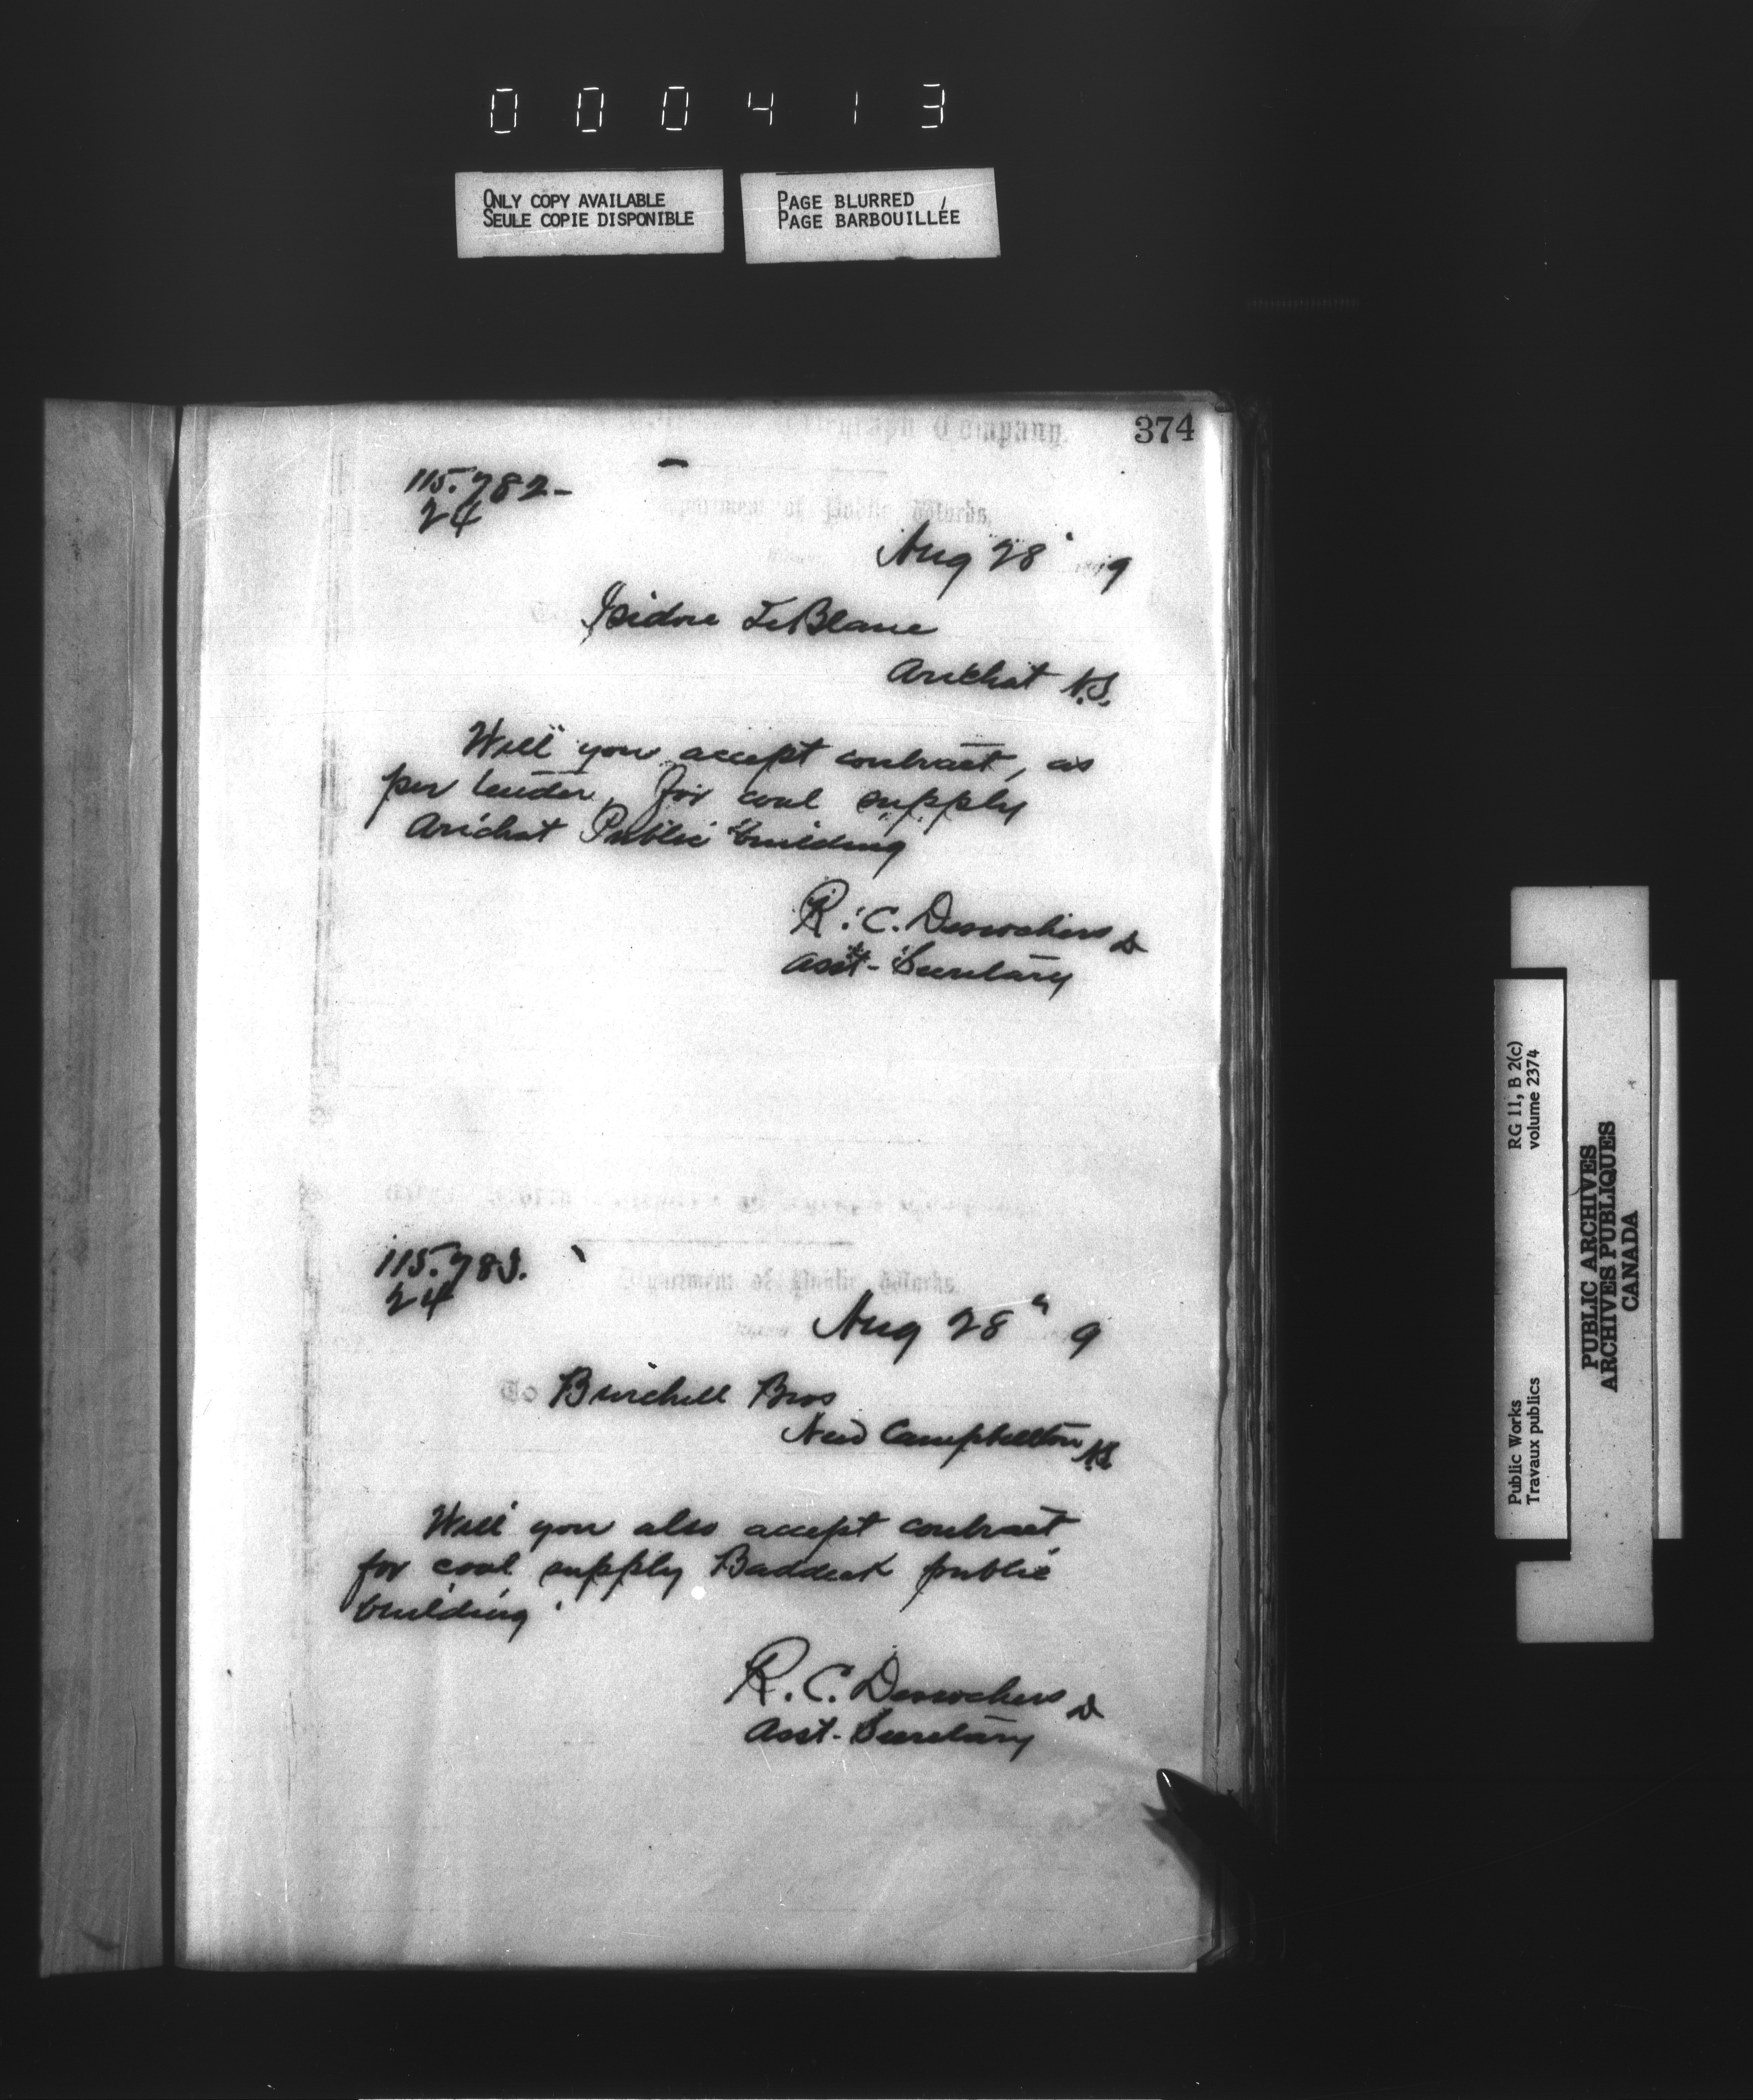 000413
ONLY COPY AVAILABLE
SEULE COPIE DISPONIBLE
PAGE BLURRED
PAGE BARBOUILLÉE
374
Telegraph Company.
115.782-
24
Department of Public Works,
Aug 28 9
Isidore LeBlanc
Arichat N.S.
Will you accept contract, as
per tender, for coal supply
Arichat Public building
R. C. Desrochers
Asst-Secretary
115.783.
24
Department of Public Works,
Aug 28" 9
To Burchell Bros
New Campbellton N.S.
Will you also accept contract
for coal supply Baddeck public
building.
R. C. Desrochers
Asst-Secretary
Public Works
Travaux publics
RG 11, B 2(c)
volume 2374
PUBLIC ARCHIVES
ARCHIVES PUBLIQUES
CANADA